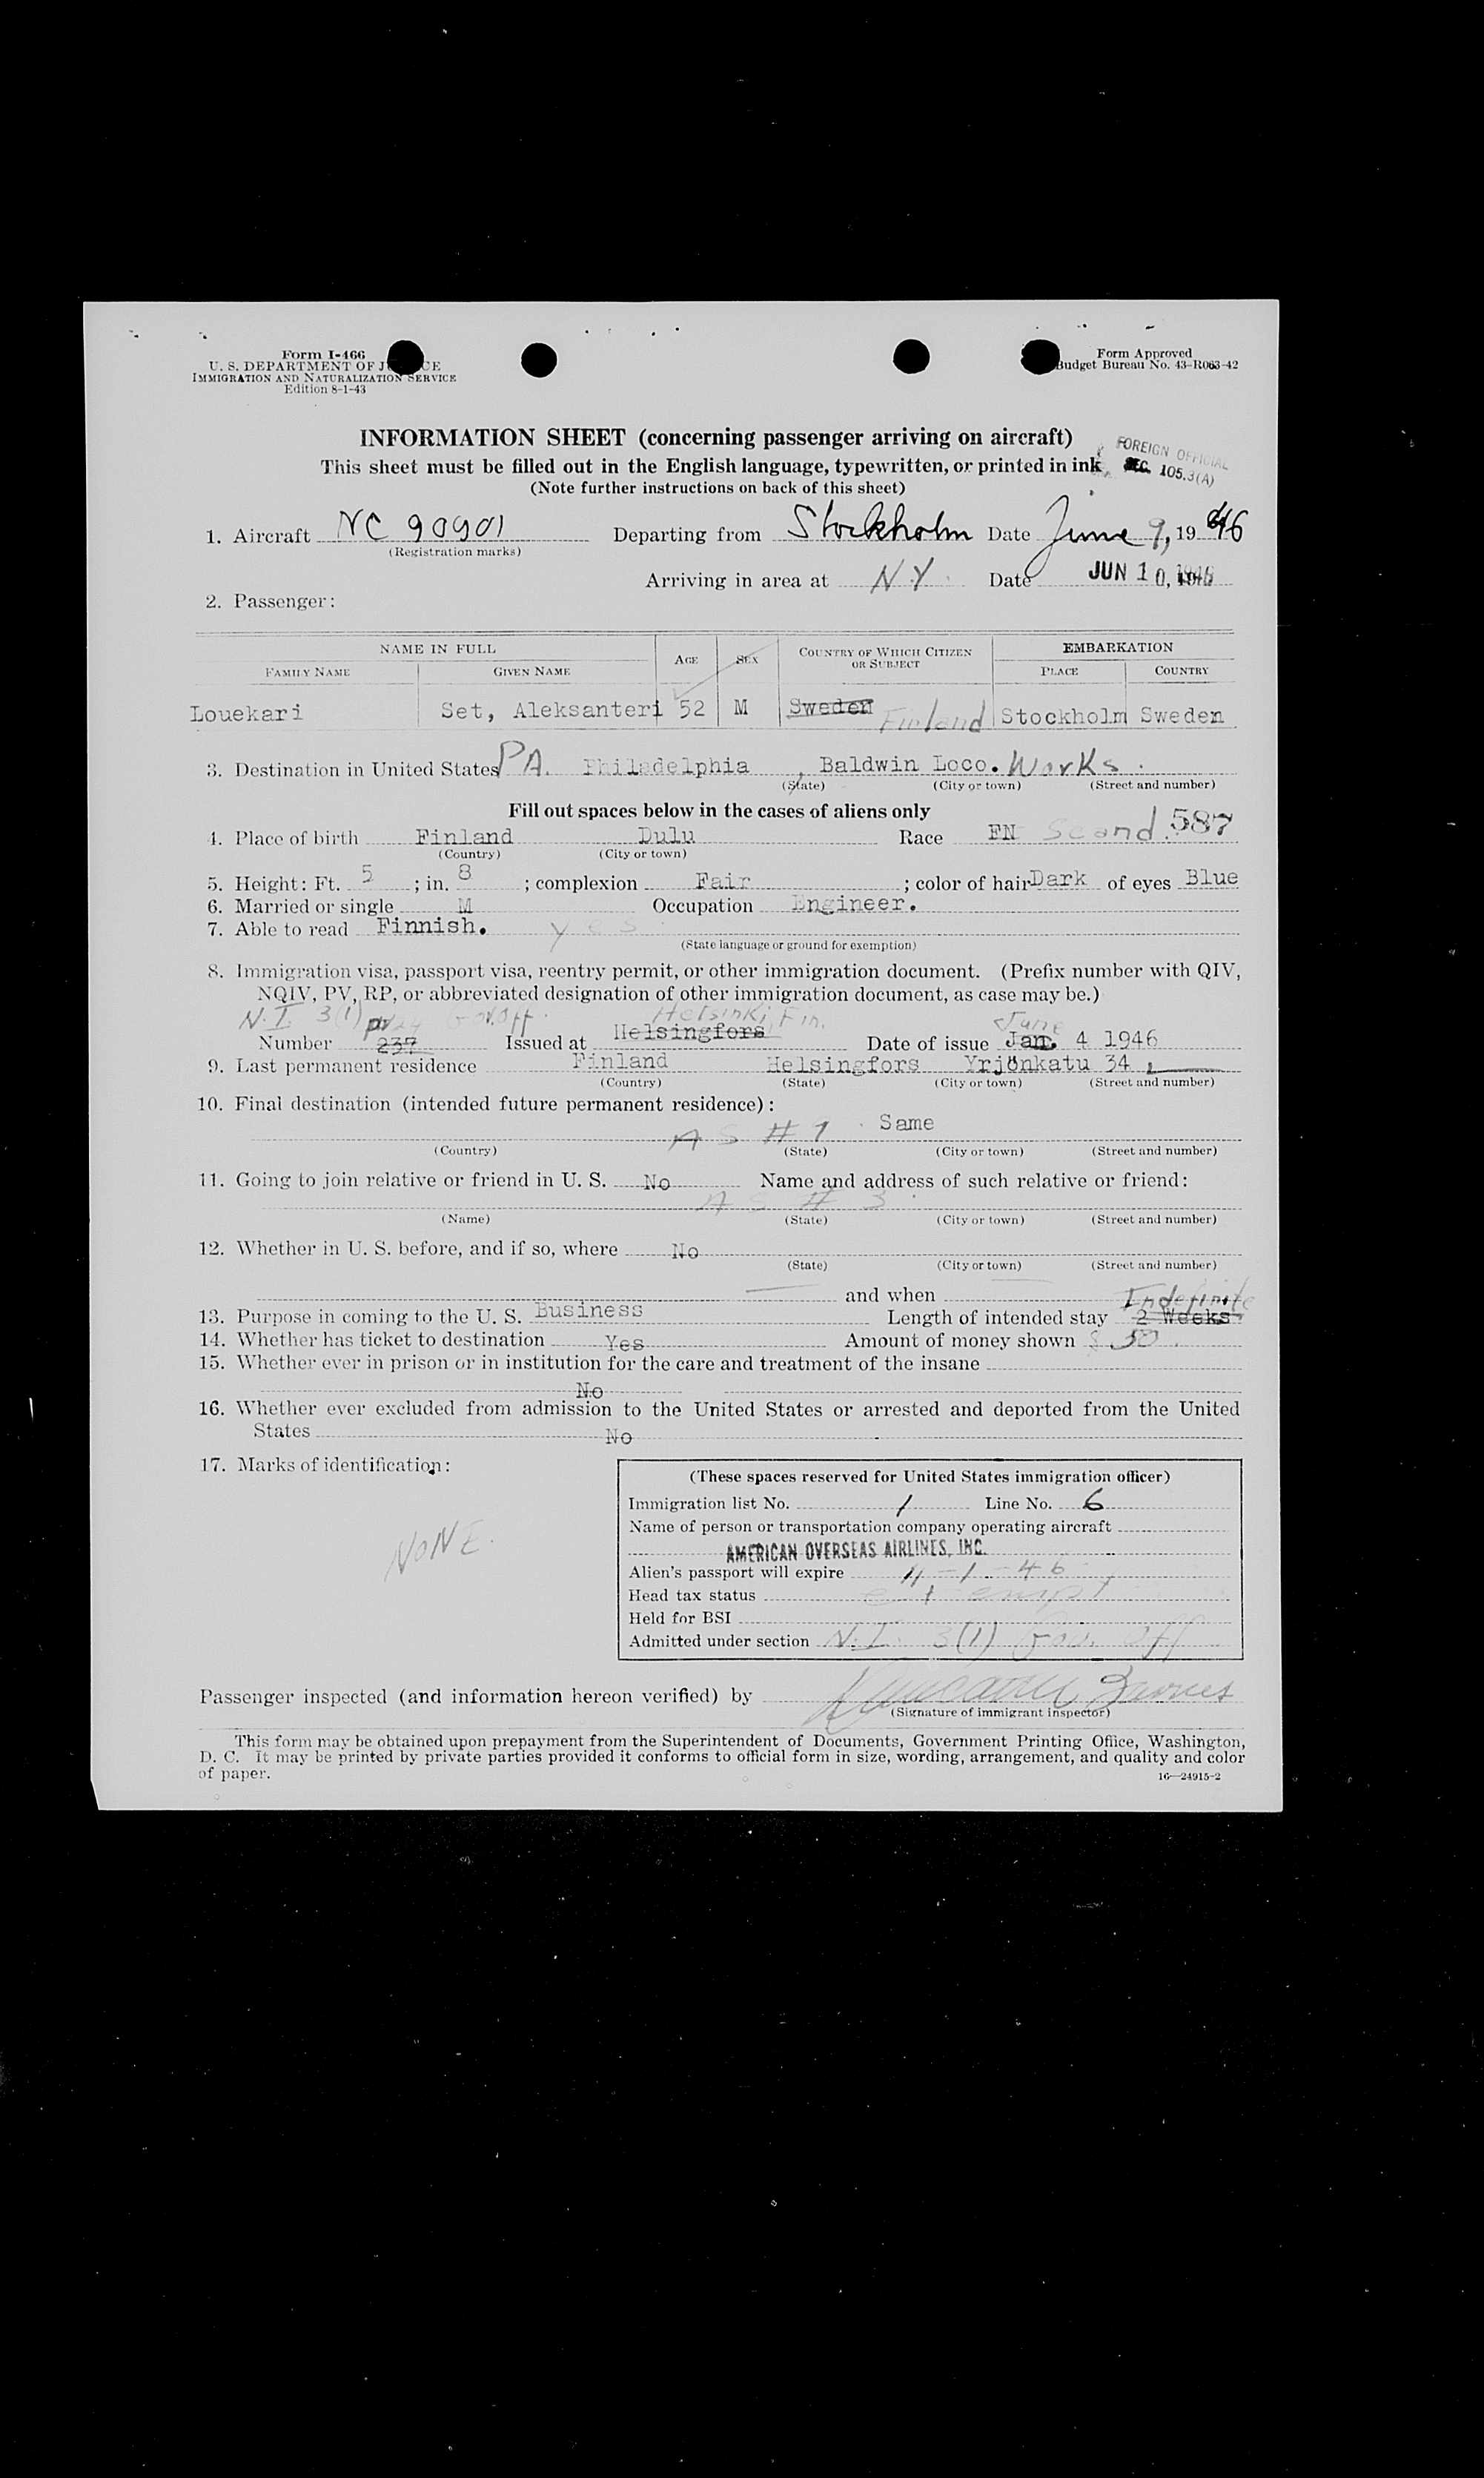 Form I-466
U. S. DEPARTMENT OF J CE
IMMIGRATION AND NATURALIZATION SERVICE
Edition 8-1-43
Form Approved
Budget Bureau No. 43-R063-42
INFORMATION SHEET (concerning passenger arriving on aircraft)
This sheet must be filled out in the English language, typewritten, or printed in ink
(Note further instructions on back of this sheet)
FOREIGN OFFICIAL
SEC. 105.3(A)
1. Aircraft NC 90901 Departing from Stockholm Date June 9, 1946
(Registration marks)
Arriving in area at N.Y. Date JUN 10, 1946
2. Passenger:
NAME IN FULL AGE SEX COUNTRY OF WHICH CITIZEN OR SUBJECT EMBARKATION
FAMILY NAME GIVEN NAME PLACE COUNTRY
Louekari Set, Aleksanteri 52 M Sweden Finland Stockholm Sweden
3. Destination in United States PA. Philadelphia, Baldwin Loco. Works.
(State) (City or town) (Street and number)
Fill out spaces below in the cases of aliens only
4. Place of birth Finland Dulu Race FN Scand. 587
(Country) (City or town)
5. Height: Ft. 5; in. 8; complexion Fair; color of hair Dark of eyes Blue
6. Married or single M Occupation Engineer.
7. Able to read Finnish. yes
(State language or ground for exemption)
8. Immigration visa, passport visa, reentry permit, or other immigration document. (Prefix number with QIV,
NQIV, PV, RP, or abbreviated designation of other immigration document, as case may be.)
N.I. 3(1) Gov. Off. Helsinki Fin. June
Number PV 237 Issued at Helsingfors Date of issue Jan. 4 1946
9. Last permanent residence Finland Helsingfors Yrjönkatu 34
(Country) (State) (City or town) (Street and number)
10. Final destination (intended future permanent residence):
AS # 9 Same
(Country) (State) (City or town) (Street and number)
11. Going to join relative or friend in U. S. No Name and address of such relative or friend:
AS # 3.
(Name) (State) (City or town) (Street and number)
12. Whether in U. S. before, and if so, where No
(State) (City or town) (Street and number)
and when
13. Purpose in coming to the U. S. Business Length of intended stay 2 Weeks Indefinite
14. Whether has ticket to destination Yes Amount of money shown $ 50.
15. Whether ever in prison or in institution for the care and treatment of the insane
No
16. Whether ever excluded from admission to the United States or arrested and deported from the United
States No
17. Marks of identification:
NONE.
(These spaces reserved for United States immigration officer)
Immigration list No. 1 Line No. 6
Name of person or transportation company operating aircraft
AMERICAN OVERSEAS AIRLINES, INC.
Alien's passport will expire 11-1-46
Head tax status exempt
Held for BSI
Admitted under section N.I. 3(1) Gov. Off
Passenger inspected (and information hereon verified) by
(Signature of immigrant inspector)
This form may be obtained upon prepayment from the Superintendent of Documents, Government Printing Office, Washington,
D. C. It may be printed by private parties provided it conforms to official form in size, wording, arrangement, and quality and color
of paper.
16—24915-2